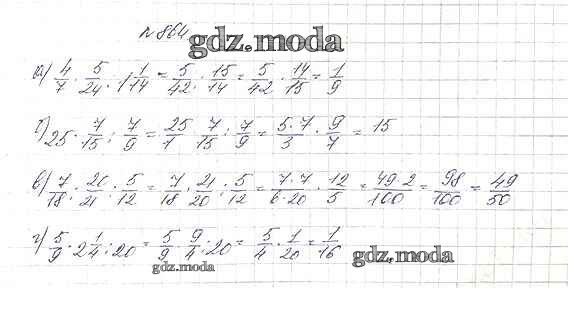 №864
gdz.moda
а) 4/7 · 5/24 : 1 1/14 = 5/42 : 15/14 = 5/42 · 14/15 = 1/9
б) 25 · 7/15 : 7/9 = 25/1 · 7/15 : 7/9 = 5·7/3 · 9/7 = 15
в) 7/18 : 20/21 : 5/12 = 7/18 · 21/20 : 5/12 = 7·7/6·20 · 12/5 = 49·2/100 = 98/100 = 49/50
г) 5/9 · 2 1/4 : 20 = 5/9 · 9/4 : 20 = 5/4 · 1/20 = 1/16
gdz.moda
gdz.moda